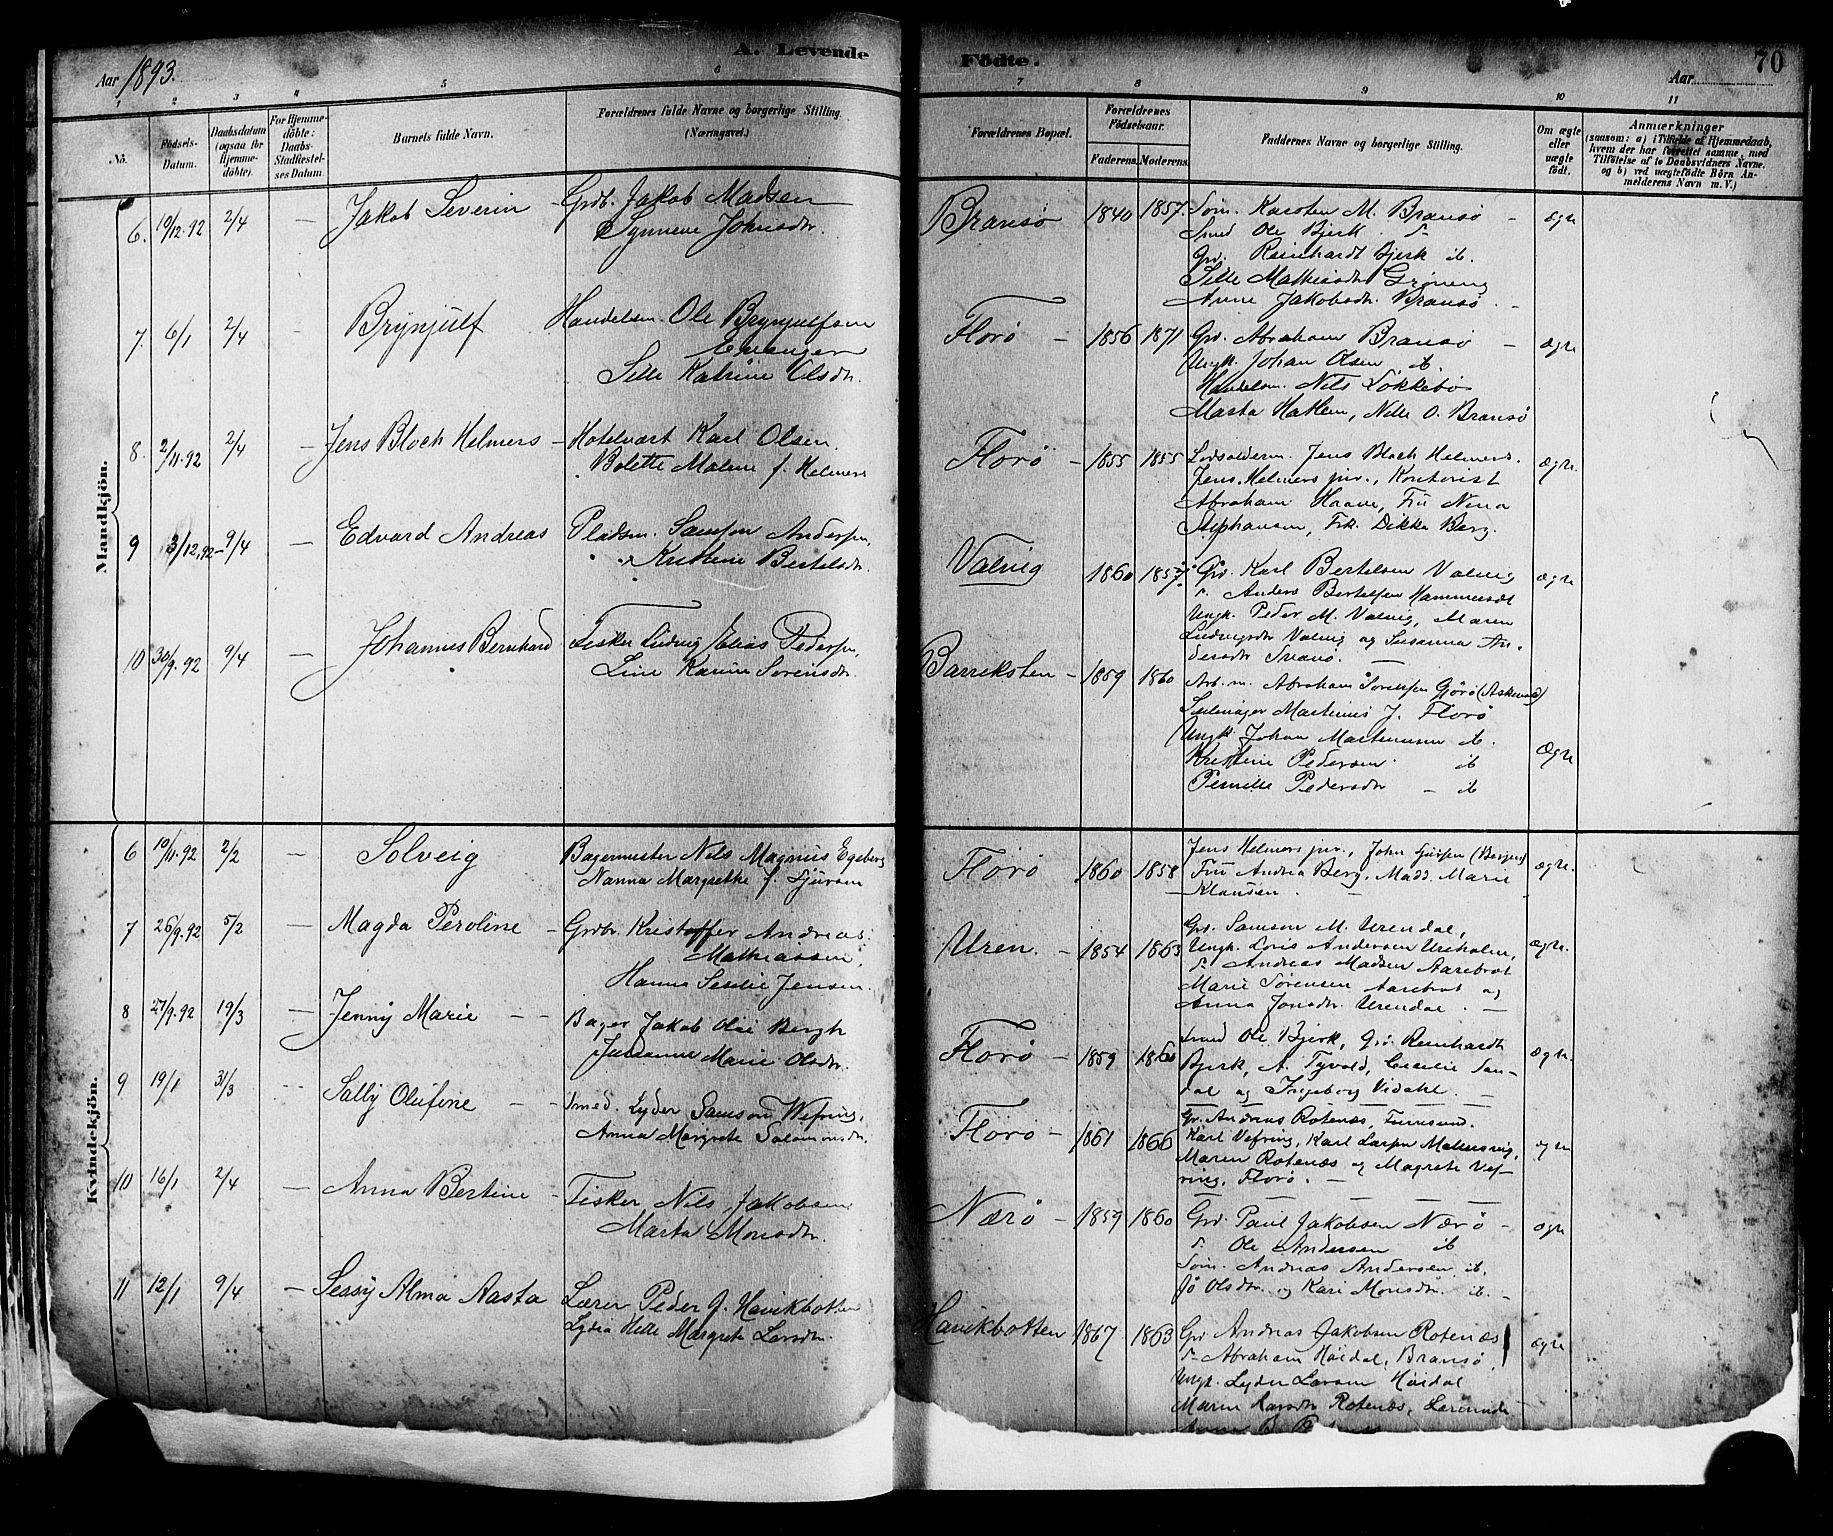 A. Levende
Fødte.
70
Aar 1893.
Aar
1 2 3 4 5 6 7 8 9 10 11
No.
Födsels-
Datum.
Daabsdatum
(ogsaa for
Hjemme-
döbte).
For Hjemme-
döbte:
Daabs-
Stadfæstel-
ses Datum.
Barnets fulde Navn.
Forældrenes fulde Navne og borgerlige Stilling.
(Næringsvei.)
Forældrenes Bopæl.
Forældrenes
Födselsaar.
Faderens. Moderens.
Faddernes Navne og borgerlige Stilling.
Om ægte
eller
uægte
født.
Anmærkninger
(saasom: a) i Tilfælde af Hjemmedaab,
hvem der har forrettet samme, med
Tilföielse af to Daabsvidners Navne,
og b) ved uægtefödte Börn An-
melderens Navn m. V.)
Mandkjön.
6. 19/12.92 2/4 — Jakob Severin — Grdb. Jakob Madsen
Synneve Johnsdtr.
Bransø 1840 1857. Søn. Karsten M. Bransø — ægte
Smed Ole Bjerk
Grd. Reinhardt Bjerk ib.
Sille Mathiasdtr Grøneng
Anne Jakobsdtr. Bransø. —
7. 6/1 2/4 - Brynjulf Handelsm. Ole Brynjulfsen
Sille Katrine Olsdtr.
Florø — 1856 1871 Grd. Abraham Bransø — ægte
Ungk. Johan Olsen ib.
Handelsm. Nils Løkkebø
Marta Hatlem, Nille O. Bransø
8. 2/11.92 2/4 — Jens Bloch Helmers — Hotelvært Karl Olsen
Bolette Malene f. Helmers
Florø — 1855 1855 Lodsolderm. Jens Bloch Helmers. ægte.
Jens Helmers jnr., Kontorist
Abraham Haave, Fru Nina
Stephansen, Frk. Dikka Berg.
9 3/12.92 — 9/4 — Edvard Andreas Pladsm. Samson Andersen,
Kristine Bertelsdtr.
Valvig 1860 1857 Grd. Karl Bertelsen Valvig ægte
Anders Bertelsen Hammersæt
Ungk. Peder M. Valvig, Maren
Ludvigsdtr Valvig og Susanna An-
dersdtr Svanø. —
10 30/9.92 9/4 — Johannes Bernhard Fisker Ludvig Elias Pedersen,
Line Karine Sørensdtr.
Barreksten — 1859 1860 Arb.m. Abraham Sørensen Gjørø (Askevold)
Seilmager Martinus J. Florø
Ungk. Johan Martinussen ib.
Kristine Pedersen ib ægte
Pernille Pedersdtr — ib
Kvindekjön.
6 10/11.92 2/2 — Solveig Bagermester Nils Magnus Egeberg
Nanna Margrethe f. Sjursen
Florø 1860 1858 Jens Helmers jnr., John Sjursen (Bergen) ægte.
Fru Andrea Berg, Mad. Marie
Klausen.
7 26/9.92 5/2 — Magda Peroline — Grdbr. Kristoffer Andreas
Mathiassen,
Hanna Seselie Jensen.
Uren. — 1854 1863 Grd. Samson M. Urendal, ægte.
Ungk. Loris Andersen Ureholm,
Andreas Madsen Aarebrot
Marie Sørensen Aarebrot og
Anna Jonsdtr. Urendal. —
8 27/9.92 19/3 — Jenny Marie — Bager Jakob Olai Bergh
Susanne Marie Olsdtr.
Florø — 1859 1860 Smed Ole Bjerk, Grd Reinhardt ægte.
Bjerk, A. Tyvold, Cecilie San-
dal og Ingeborg Vidahl. —
9 19/1 31/3 Sally Olufine — Smed. Lyder Samson Wefring,
Anna Margrete Salomonsdtr.
Florø — 1861 1866 Gr. Andreas Rotenæs, Furesund. ægte
Karl Vefring, Karl Larsen Malmsvig,
Maren Rotenæs og Magrete Vef-
ring, Florø. —
10 16/1 2/4 — Anna Bertine — Fisker Nils Jakobsen
Marta Monsdtr.
Nærø — 1859 1860 Grd. Paul Jakobsen Nærø — ægte
Ole Andersen ib
Søn. Andreas Andersen ib.
Jo Olsdtr. og Kari Monsdtr. ib. —
11 12/1 9/4 — Sessy Alma Aasta Lærer Peder J. Havikbotten
Lydia Helle Margrete Larsdtr.
Havikbotten 1867 1863 Grd Andreas Jakobsen Rotenæs ægte
Abraham Høidal, Bransø,
Ungk. Lyder Larsen Høidal
Maren Larsdtr Rotenæs, Lærerinde
Anna B. Rotenæs